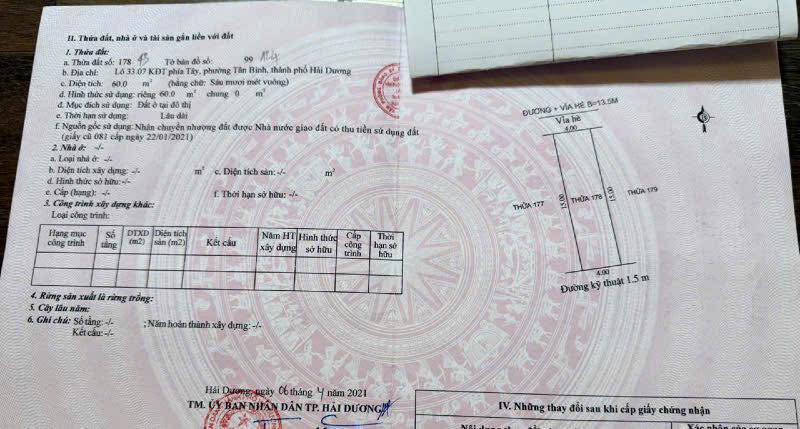 II. Thửa đất, nhà ở và tài sản gắn liền với đất
1. Thửa đất:
a. Thửa đất số: 178 Tờ bản đồ số: 99
b. Địa chỉ: Lô 33.07 KĐT phía Tây, phường Tân Bình, thành phố Hải Dương
c. Diện tích: 60.0 m² (bằng chữ: Sáu mươi mét vuông)
d. Hình thức sử dụng: riêng 60.0 m² chung 0 m²
đ. Mục đích sử dụng: Đất ở tại đô thị
e. Thời hạn sử dụng: Lâu dài
f. Nguồn gốc sử dụng: Nhận chuyển nhượng đất được Nhà nước giao đất có thu tiền sử dụng đất
(giấy cũ 081 cấp ngày 22/01/2021)
2. Nhà ở: -/-
a. Loại nhà ở: -/-
b. Diện tích xây dựng: -/- m² c. Diện tích sàn: -/- m²
d. Hình thức sở hữu: -/-
e. Cấp (hạng): -/- f. Thời hạn sở hữu: -/-
3. Công trình xây dựng khác:
Loại công trình:
Hạng mục công trình Số tầng DTXD (m2) Diện tích sàn (m2) Kết cấu Năm HT xây dựng Hình thức sở hữu Cấp công trình Thời hạn sở hữu
4. Rừng sản xuất là rừng trồng:
5. Cây lâu năm:
6. Ghi chú: Số tầng: -/- ; Năm hoàn thành xây dựng: -/-
Kết cấu: -/-
Hải Dương, ngày 06 tháng 4 năm 2021
TM. ỦY BAN NHÂN DÂN TP. HẢI DƯƠNG
ĐƯỜNG + VỈA HÈ B=13.5M
Vỉa hè
4.00
THỬA 177
15.00
THỬA 178
15.00
THỬA 179
4.00
Đường kỹ thuật 1.5 m
IV. Những thay đổi sau khi cấp giấy chứng nhận